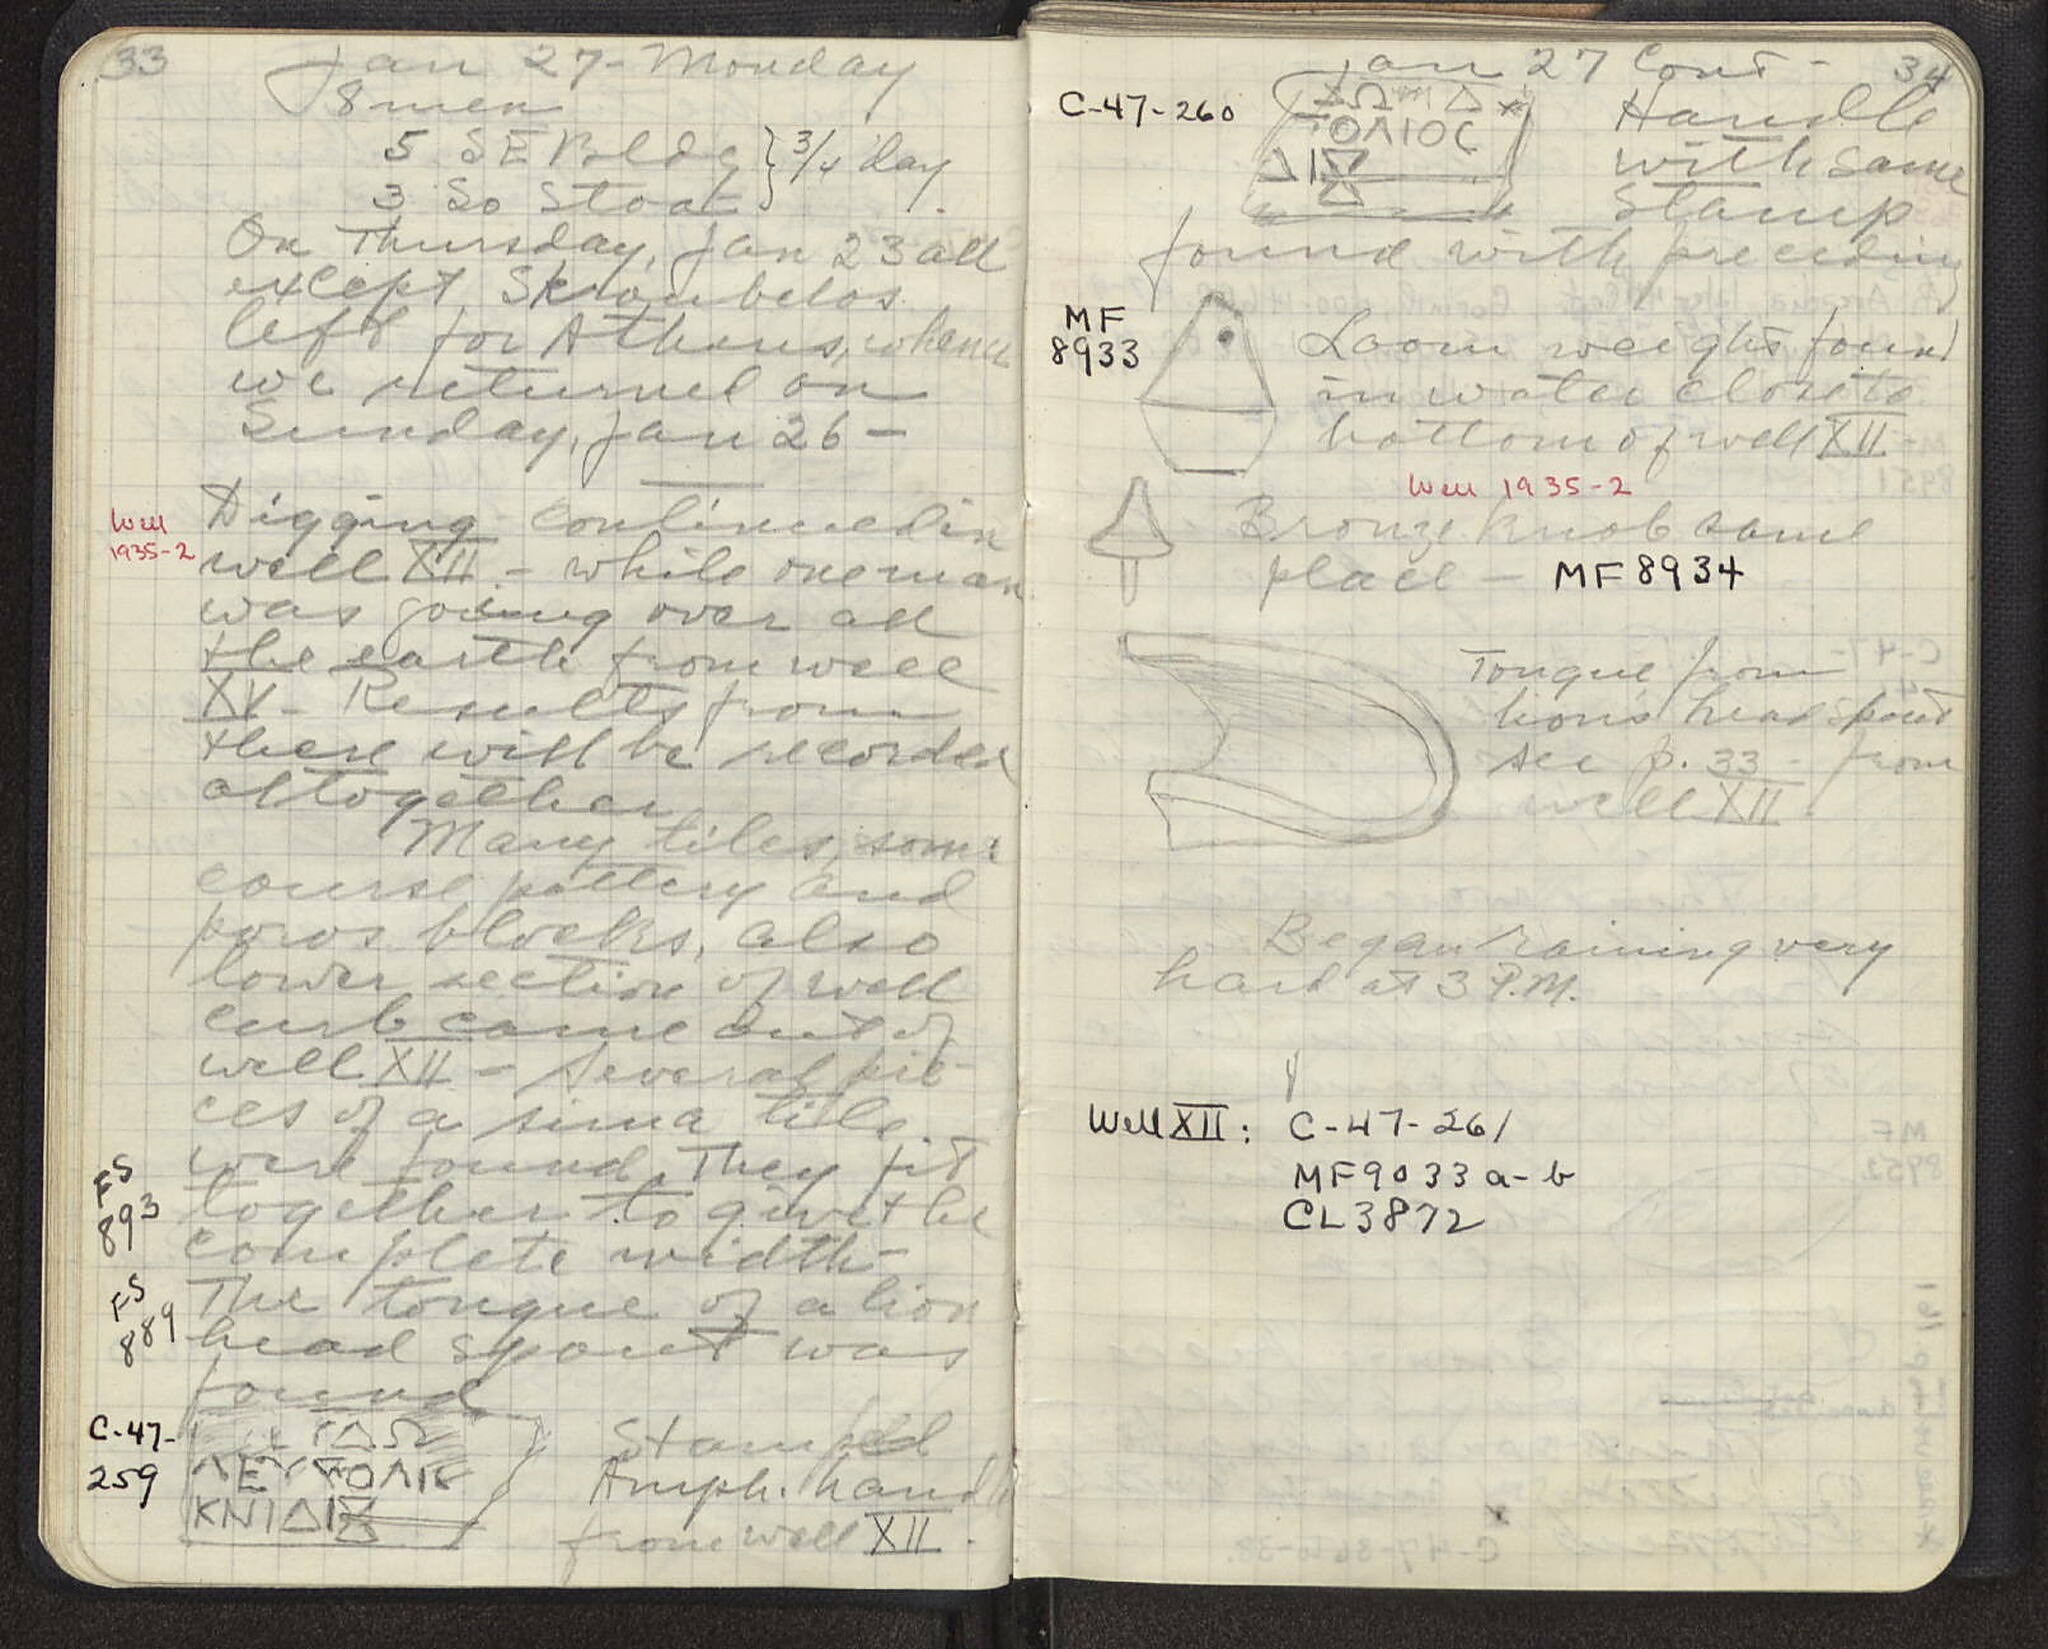 33
Jan 27 - Monday
8 men
5 SE Bldg } 3/4 day
3 So Stoa
On Thursday, Jan 23 all
except Skroubelos
left for Athens, whence
we returned on
Sunday, Jan 26 -
Well
1935-2
Digging continued in
well XII - while one man
was going over all
the earth from well
XV. Results from
there will be recorded
altogether
Many tiles, some
course pottery and
poros blocks, also
lower section of well
curb came out of
well XII - Several pie-
ces of a sima tile
were found. They fit
FS
893
together to give the
complete width -
FS
889
The tongue of a lion
head spout was
found
C-47-
259
ΚΝΙΔΙ
Stamped
Amph. handle
from well XII.
Jan 27 Cont - 34
C-47-260
ΠΟΛΙΟC
ΔΙ
Handle
with same
stamp
found with preceding
MF
8933
Loom weight found
in water close to
bottom of well XII
Well 1935-2
Bronze knob same
place - MF 8934
Tongue from
lion's head spout
see p. 33 - from
well XII
Began raining very
hard at 3 P.M.
Well XII: C-47-261
MF9033 a-b
CL3872